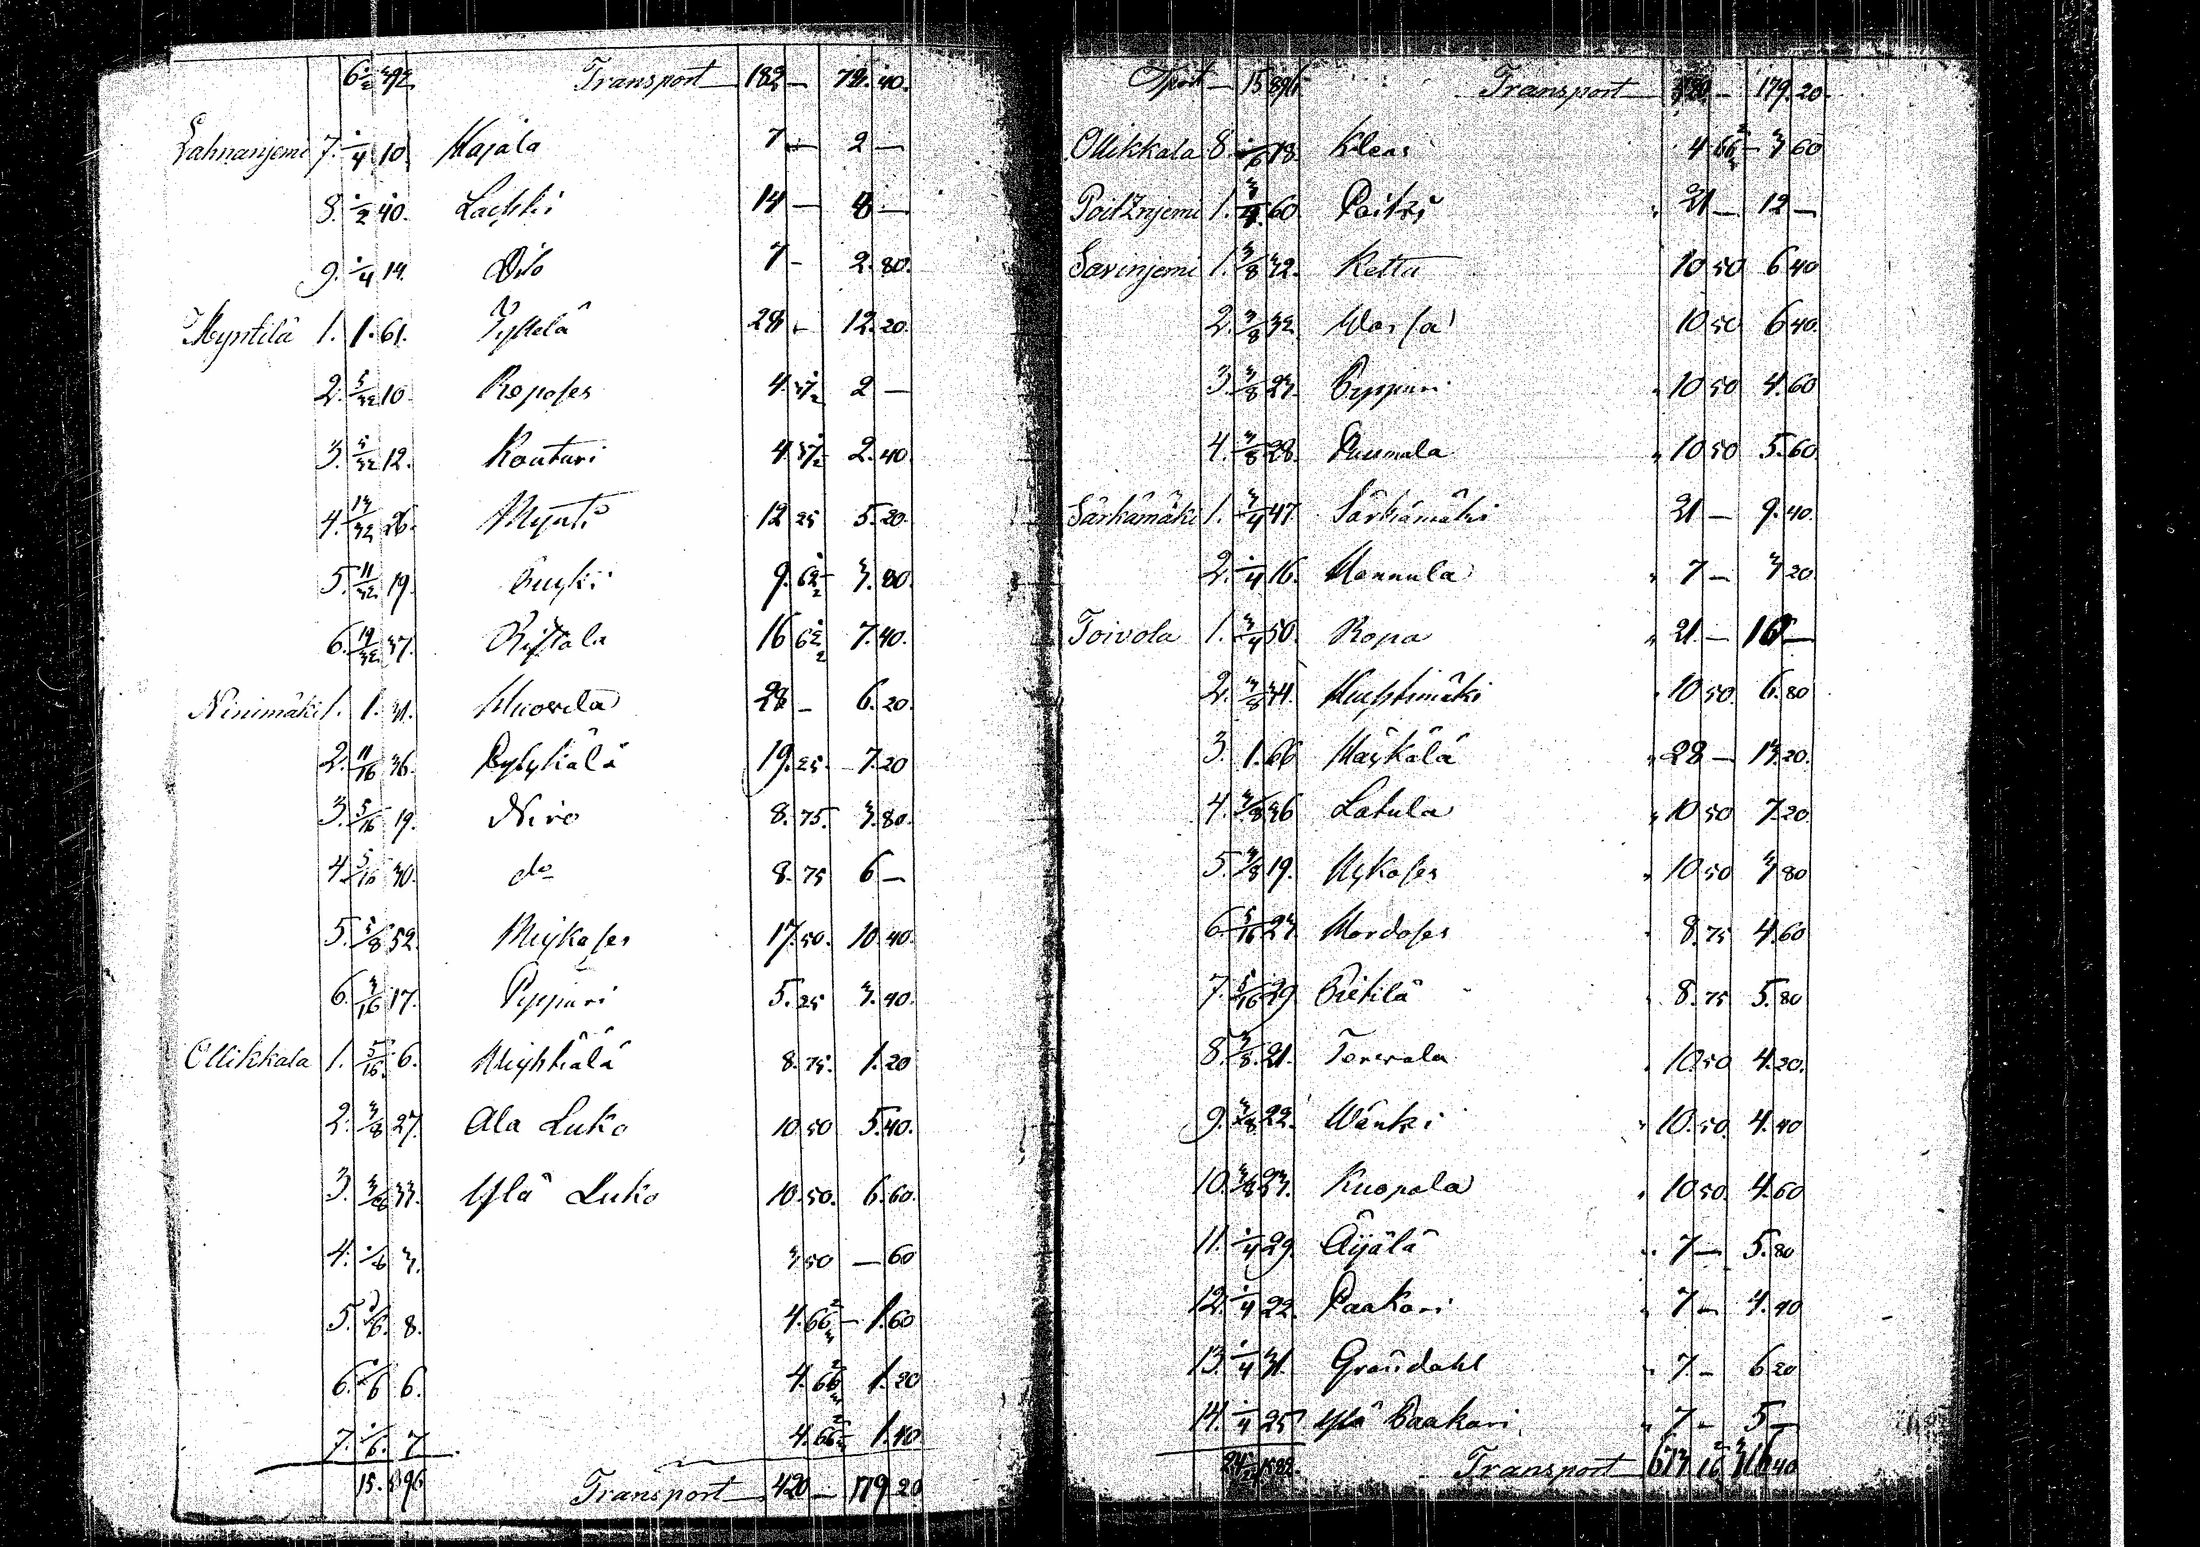 6 1/2 392. Transport 182 — 78. 40.
Lahnanjemi 7. 1/4 10. Majala 7 — 2 —
8. 1/2 40. 14 — 8 —
9. 1/4 14. 7 — 2. 80.
Myntilä 1. 1. 61. 28 - 12. 20.
2. 5/32 10. Roposes 4. 37 1/2 2 —
3. 5/32 12. Kouturi 4 37 1/2 2. 40.
4. 13/32 26. Myntti 12 25 5. 20.
5. 11/32 19. 9. 62 1/2 3. 80.
6. 19/32 37. Ristola 16 62 1/2 7. 40.
Ninimäki 1. 1. 31. Muorila 28 - 6. 20.
2. 11/16 36. 19. 25. 7. 20
3. 5/16 19. Niro 8. 75. 3. 80.
4. 5/16 30. do 8. 75 6 —
5. 5/8 52. 17. 50. 10. 40.
6. 3/16 17. Pyppuri 5. 25 3. 40.
Ollikkala 1. 5/16 6. 8. 75. 1. 20
2. 3/8 27. Ala Luko 10. 50 5. 40.
3. 3/8 33. Ylä Luko 10. 50. 6. 60.
4. 1/8 3. 3. 50 — 60
5. 1/6 8. 4. 66 2/3 1. 60
6. 1/6 6. 4. 66 2/3 1. 20
7. 1/6 7 4. 66 2/3 1. 40.
15. 896 Transport 420 — 179 20
Tport — 15 896 Transport 420 — 179. 20.
Ollikkala 8. 1/6 18 Kleas 4 66 2/3 3 60
Poitznjemi 1. 3/4 60 Poitzi 21 — 12 —
Savinjemi 1. 3/8 32. Kettu 10 50 6 40
2. 3/8 32. 10 50 6 40.
3. 3/8 23. Pyppuri 10 50 4. 60
4. 3/8 28. Puumala 10 50 5. 60
Särkämäki 1. 3/4 47. Särkämäki 21 — 9. 40.
2. 1/4 16. Mannula 7 — 3 20
Toivola 1. 3/4 50. Ropa 21. — 10 —
2. 3/8 34. 10 50. 6. 80
3. 1. 66 28 — 13. 20.
4. 3/8 36 Latula 10 50 7. 20.
5. 3/8 19. Uykoses 10 50 3 80
6. 5/16 23. Mordoses 8. 75 4. 60
7. 5/16 29 Pietilä 8. 75 5. 80
8. 3/8. 21. Torvala 10. 50 4. 20.
9. 3/8 22. Wänki 10. 50. 4. 40
10. 3/8 23. Kuopala 10 50. 4. 60
11. 1/4 29. Äijälä 7 — 5. 80
12. 1/4 22. Paakari 7 — 4. 40
13. 1/4 31. Grondahl 7. — 6 20
14. 1/4 25 Ylä Paakari 7 — 5 —
Transport 673 16 2/3 316 40